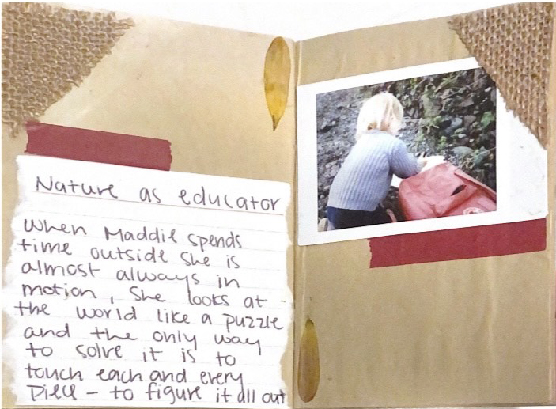 Nature as educator
When Maddie spends
time outside she is
almost always in
motion, she looks at
the world like a puzzle
and the only way
to solve it is to
touch each and every
piece - to figure it all out